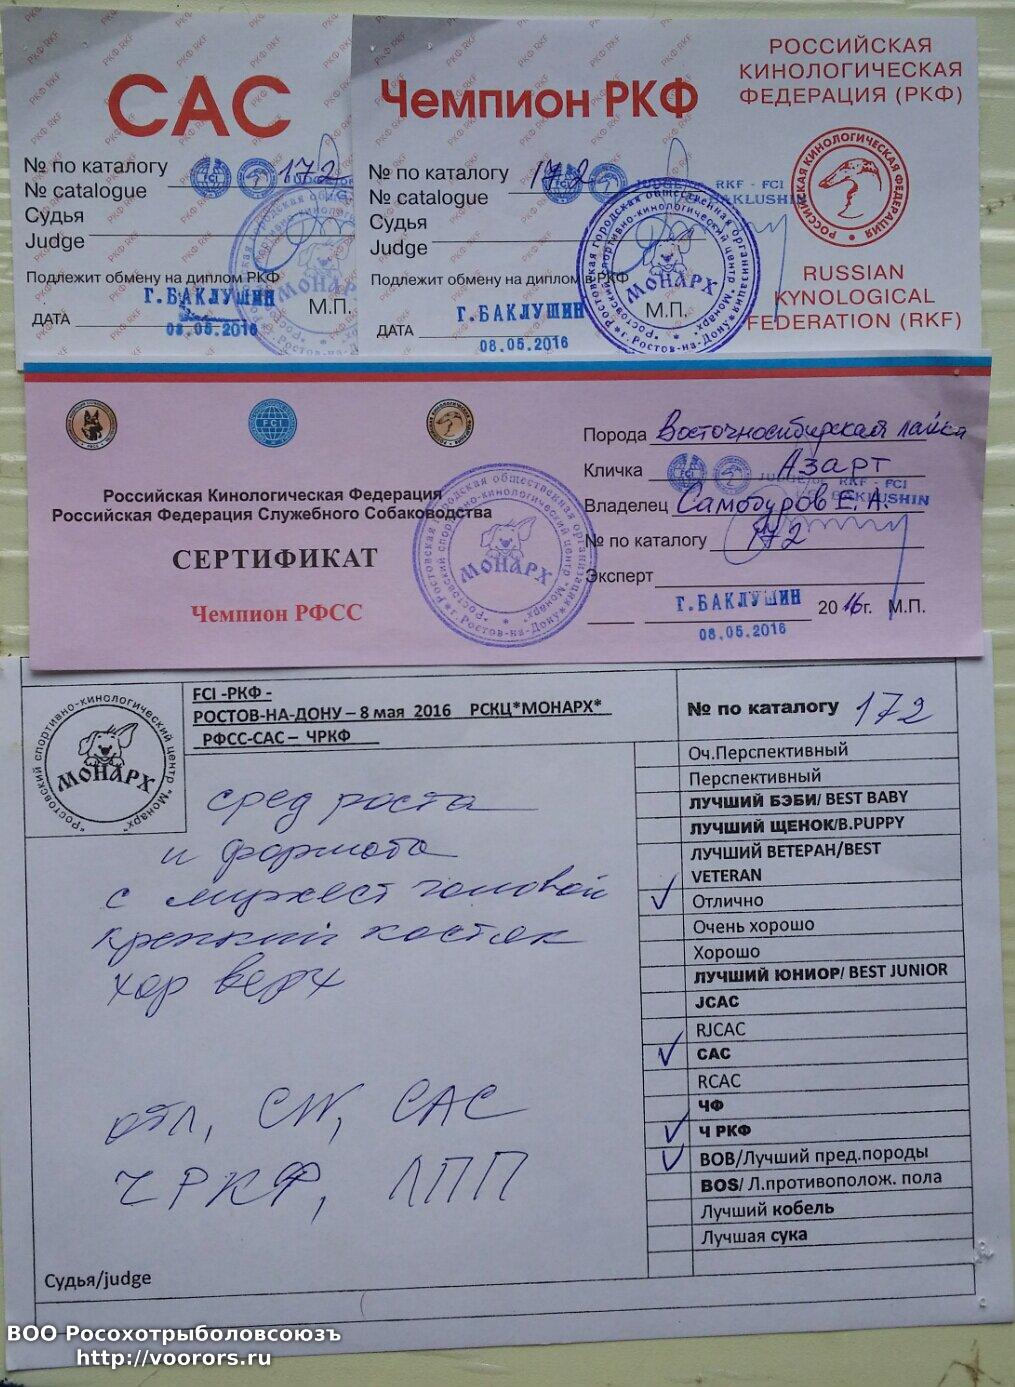 САС
№ по каталогу 172
№ catalogue
Судья
Judge
Подлежит обмену на диплом РКФ
Г.БАКЛУШИН
ДАТА
08.05.2016
М.П.
Чемпион РКФ
№ по каталогу 172
№ catalogue
Судья
Judge
RKF - FCI
BAKLUSHIN
Подлежит обмену на диплом РКФ
Г.БАКЛУШИН
ДАТА
08.05.2016
М.П.
МОНАРХ
РОССИЙСКАЯ
КИНОЛОГИЧЕСКАЯ
ФЕДЕРАЦИЯ (РКФ)
РОССИЙСКАЯ КИНОЛОГИЧЕСКАЯ ФЕДЕРАЦИЯ
RUSSIAN
KYNOLOGICAL
FEDERATION (RKF)
FCI
Российская Кинологическая Федерация
Российская Федерация Служебного Собаководства
СЕРТИФИКАТ
Чемпион РФСС
МОНАРХ
Порода Восточносибирская лайка
Кличка Азарт
RKF - FCI
BAKLUSHIN
Владелец Самбуров Е.А.
№ по каталогу 172
Эксперт
Г.БАКЛУШИН
08.05.2016
2016г. М.П.
Ростовский спортивно-кинологический центр "Монарх"
МОНАРХ
FCI -РКФ -
РОСТОВ-НА-ДОНУ – 8 мая 2016 РСКЦ*МОНАРХ*
РФСС-САС – ЧРКФ
№ по каталогу 172
сред роста
и формата
с мужест головой
крепкий костяк
хор верх
отл, CW, САС
ЧРКФ, ЛПП
Оч.Перспективный
Перспективный
ЛУЧШИЙ БЭБИ/ BEST BABY
ЛУЧШИЙ ЩЕНОК/B.PUPPY
ЛУЧШИЙ ВЕТЕРАН/BEST
VETERAN
Отлично
Очень хорошо
Хорошо
ЛУЧШИЙ ЮНИОР/ BEST JUNIOR
JCAC
RJCAC
CAC
RCAC
ЧФ
Ч РКФ
BOB/Лучший пред.породы
BOS/ Л.противополож. пола
Лучший кобель
Лучшая сука
Судья/judge
ВОО Росохотрыболовсоюзъ
http://voorors.ru